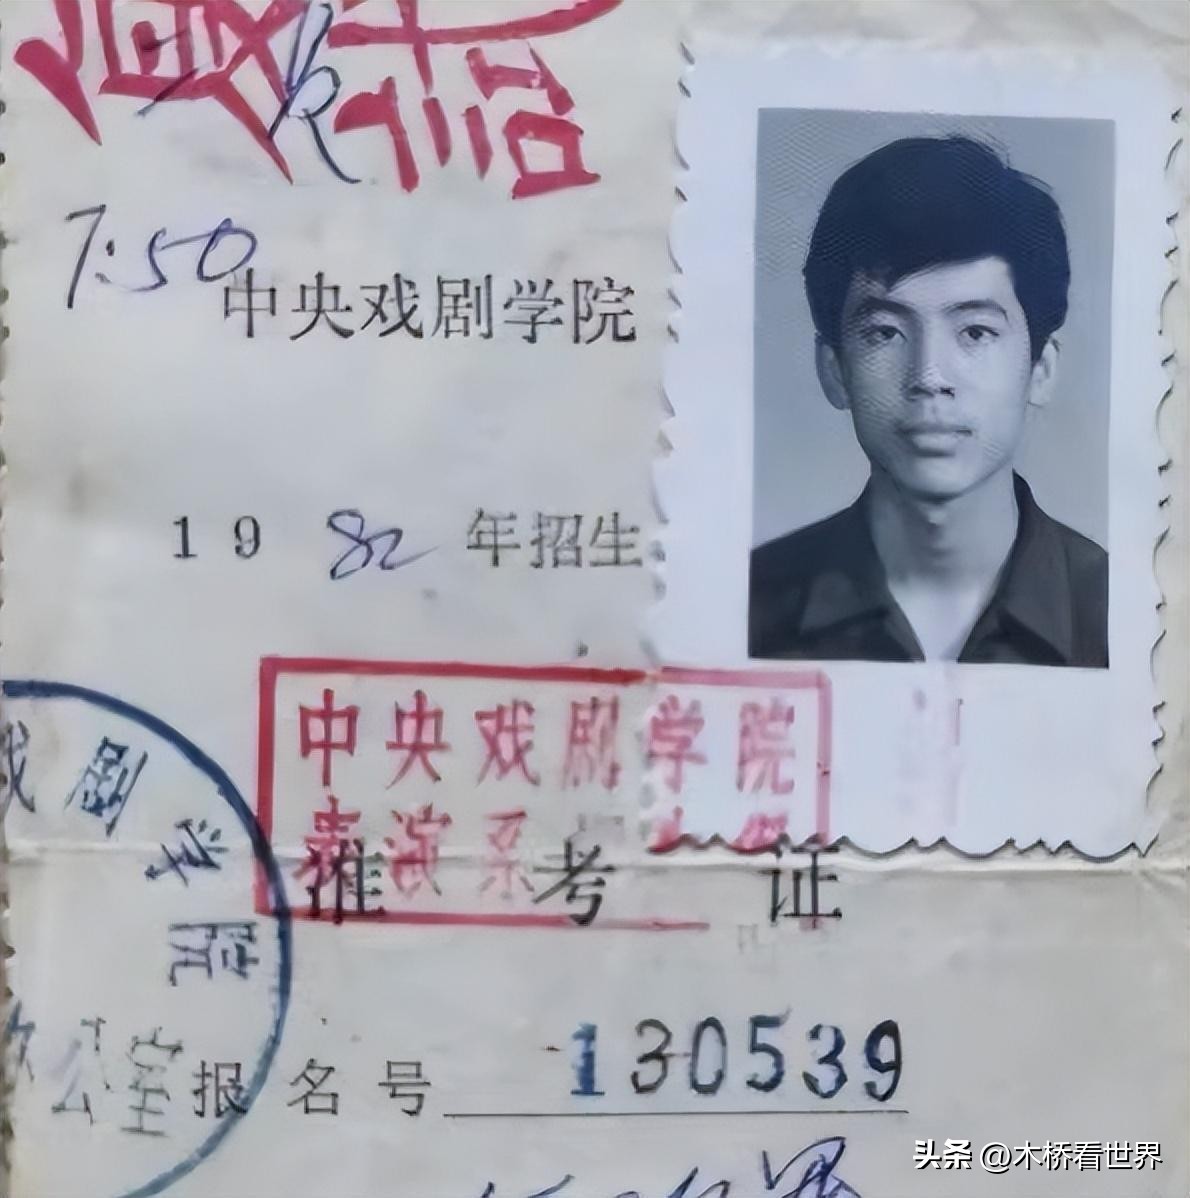 7:50
中央戏剧学院
1982年招生
中央戏剧学院
表演系
准考证
戏剧学院
办公室
报名号 130539
头条 @木桥看世界